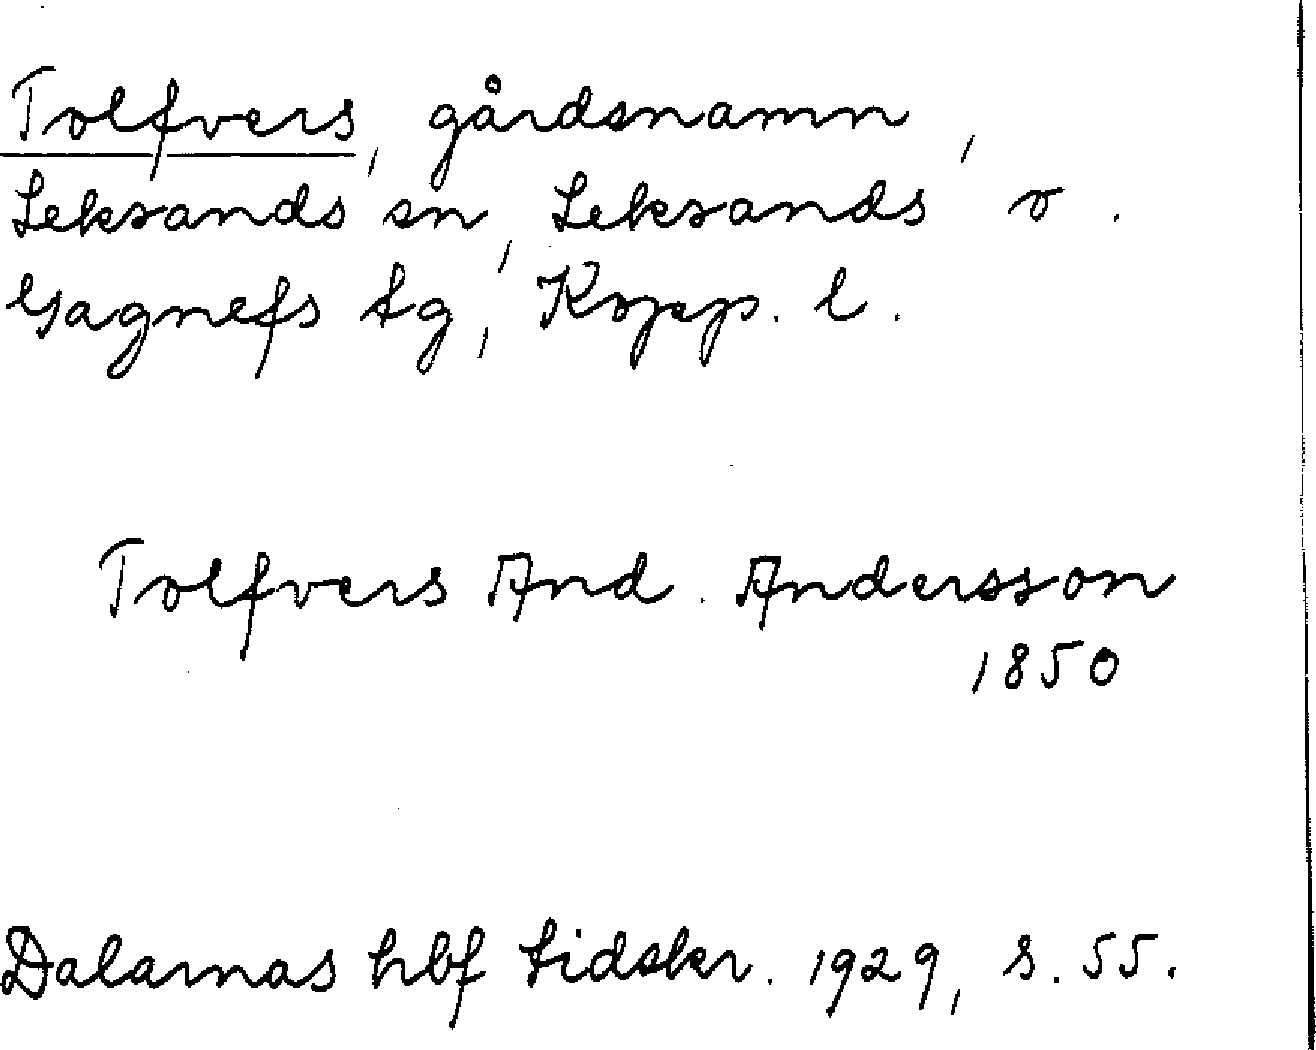 Tolfvers, gårdsnamn,
Leksands sn, Leksands o.
Gagnefs tg, Kopp. l.
Tolfvers And. Andersson
1850
Dalarnas hbf tidskr. 1929, s. 55.